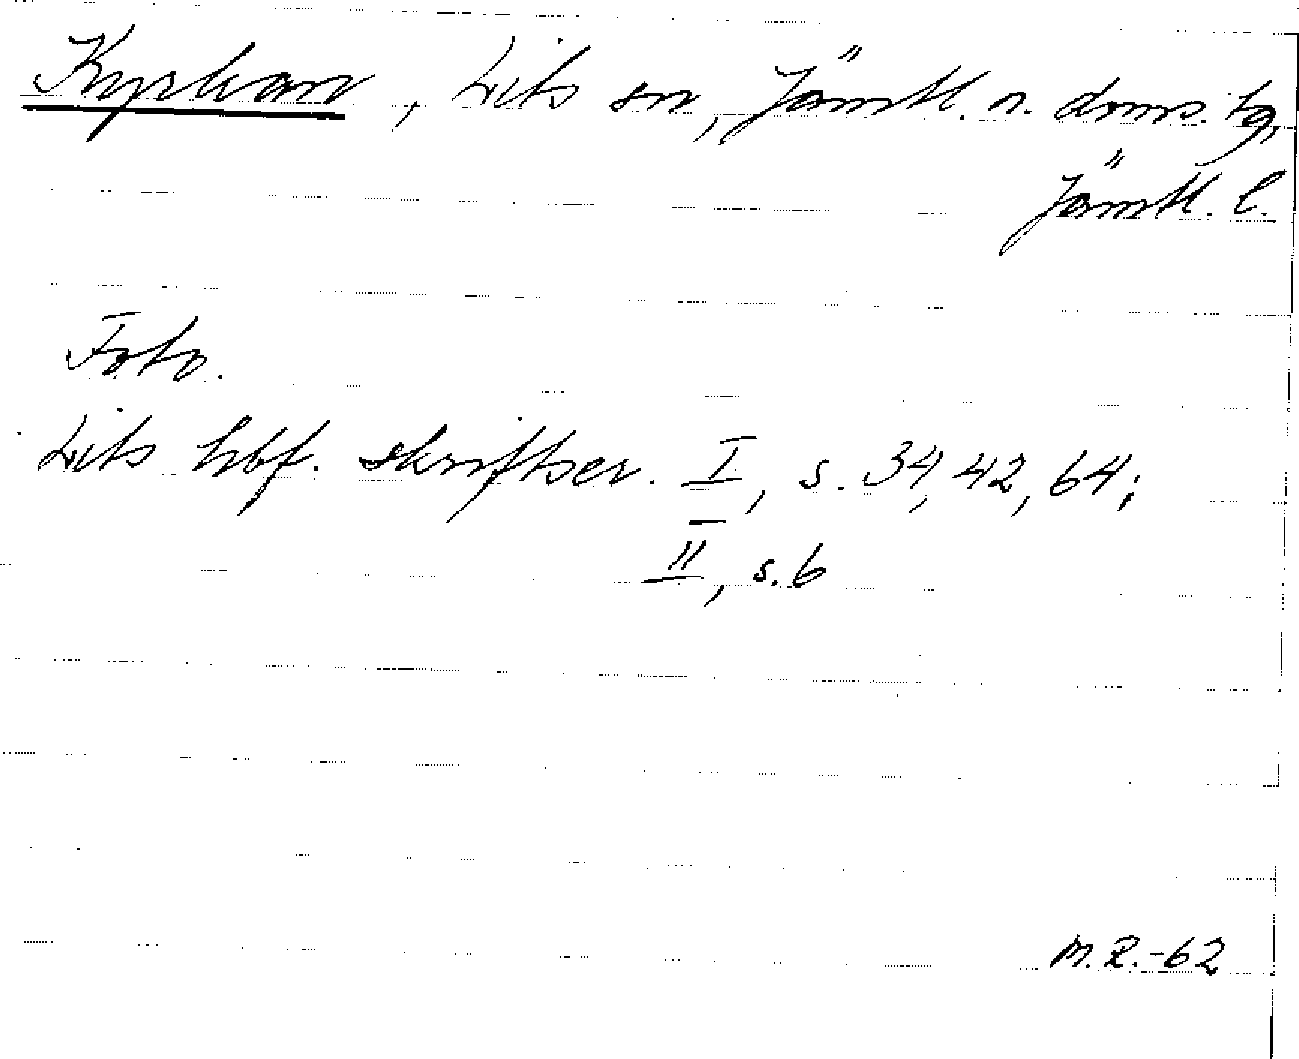 Kyrkan, Lits sn, Jämtl. n. doms. tg,
Jämtl. l.
Foto.
Lits hbf. skriftser. I, s. 34, 42, 64;
II, s. 6
M.R.-62